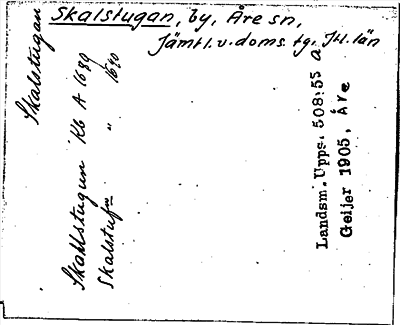 Skalstugan, by, Åre sn,
Jämtl. v. doms. tg. Jtl. län
Skalstugan
Skahlstugun Kb A 1689
Skalstufn " 1690
Landsm. Upps. 508:55 a
Geijer 1905, Åre